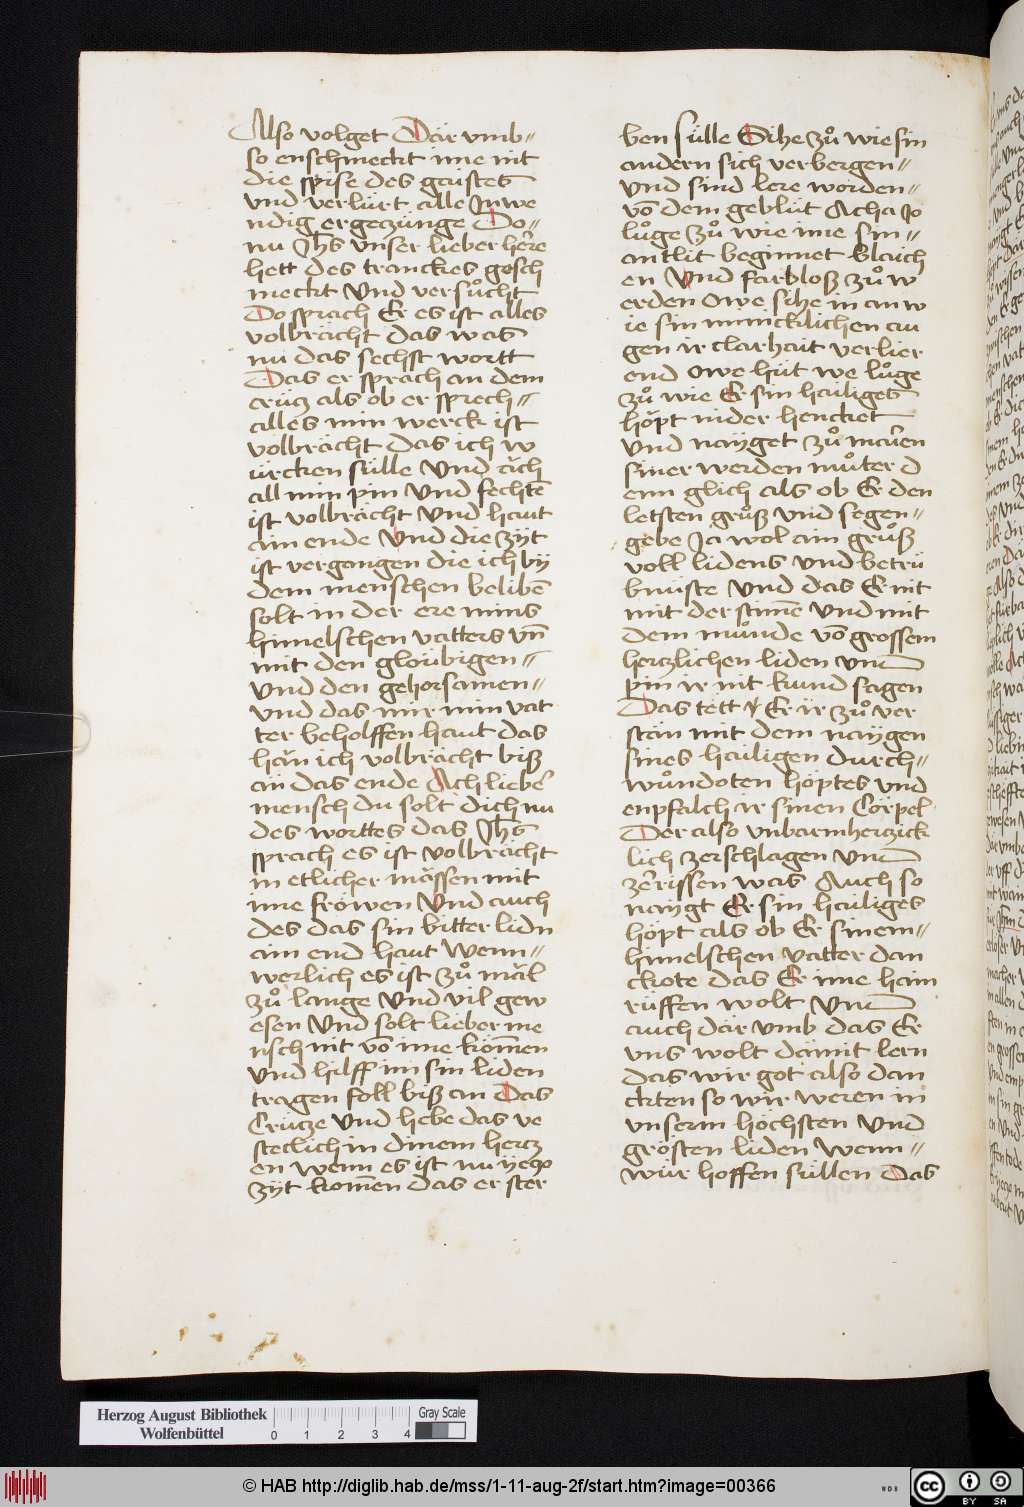 Also volget Där vmb//
so enschmeckt ime nit
die spise des gaistes
vnd verlürt alle Inwe
ndig ergeczünge Do//
nu Jhs vnser lieber here
hett des tranckes gesch
meckt Vnd versuͦcht
Do sprach Er es ist alles
volbrächt das was
nu das sechst wortt
Das er sprach an dem
crücz als ob er sprech//
alles min werck ist
volbrächt das ich w
ürcken sülle Vnd äch
all min pin Vnd fechtē
ist volbrächt Vnd haut
ain ende Vnd die zyt
ist vergangen die ich by
dem menschen belibē
solt in der ere mins
himelschen vatters vn̄
mit den gloübigen//
Vnd den gehorsamen//
Vnd das mir min vat
ter beholffen haut das
hän ich volbrächt biß
an das ende Ach lieber
mensch du solt dich nu
des worttes das Jhs
sprach es ist Volbrächt
in etlicher mässen mit
ime fröwen Vnd auch
des das sin bitter lidn
ain end haut Wenn//
werlich es ist zuͦ mäl
zuͦ lange Vnd vil gew
esen Vnd solt lieber me
nsch nit vō ime kōmen
Vnd hilff im sin liden
tragen foll biß an Das
Crütze Vnd hebe das ve
steclich in dinem hercz
en wenn es ist nu yecz
zyt komēn das er ster
ben sülle Sihe zuͦ wie sin
andern sich verbergen//
Vnd sind lere worden//
vō dem geblüt Acha Jo
luͦge zuͦ wie ime sin//
antlit beginnet blaich
en Vnd farbloß zuͦ w
erden Owe sihe in an w
ie sin mincklichen au
gen ir clarhait verlier
end Owe hüt we luͦge
zuͦ wie Er sin hailiges
höpt nider hencket
Vnd nayget zuͦ mauͤen
siner werden muͦter d
enn glich als ob Er den
letsten gruͦß vnd segen//
gebe Ja wol ain gruͦß
voll lidens Vnd betrü
bnüste Vnd das Er nit
mit der stimē Vnd mit
dem muͦnde vō grossem
herczlichen liden vnd
pin ir nit kund sagen
Das tett Er ir zuͦ ver
stän mit dem naygen
sines hailigen durch//
wuͦndoten höptes vnd
enpfalch ir sinen Cörpel
Der also vnbarmherczick
lich zerschlagen vnd
zerissen was Auch so
naygt Er sin hailiges
höpt als ob Er sinem//
himelschen vatter dan
ckote das Er ime haim
rüffen wolt Vnd
auch där vmb das Er
vns wolt dämit lern
das wir got also dan
ckten so wir weren in
vnserm höchsten Vnd
grösten liden Wenn//
wür hoffen süllen Das
Herzog August Bibliothek
Wolfenbüttel
0 1 2 3 4
Gray Scale
© HAB http://diglib.hab.de/mss/1-11-aug-2f/start.htm?image=00366
WDB
cc BY SA